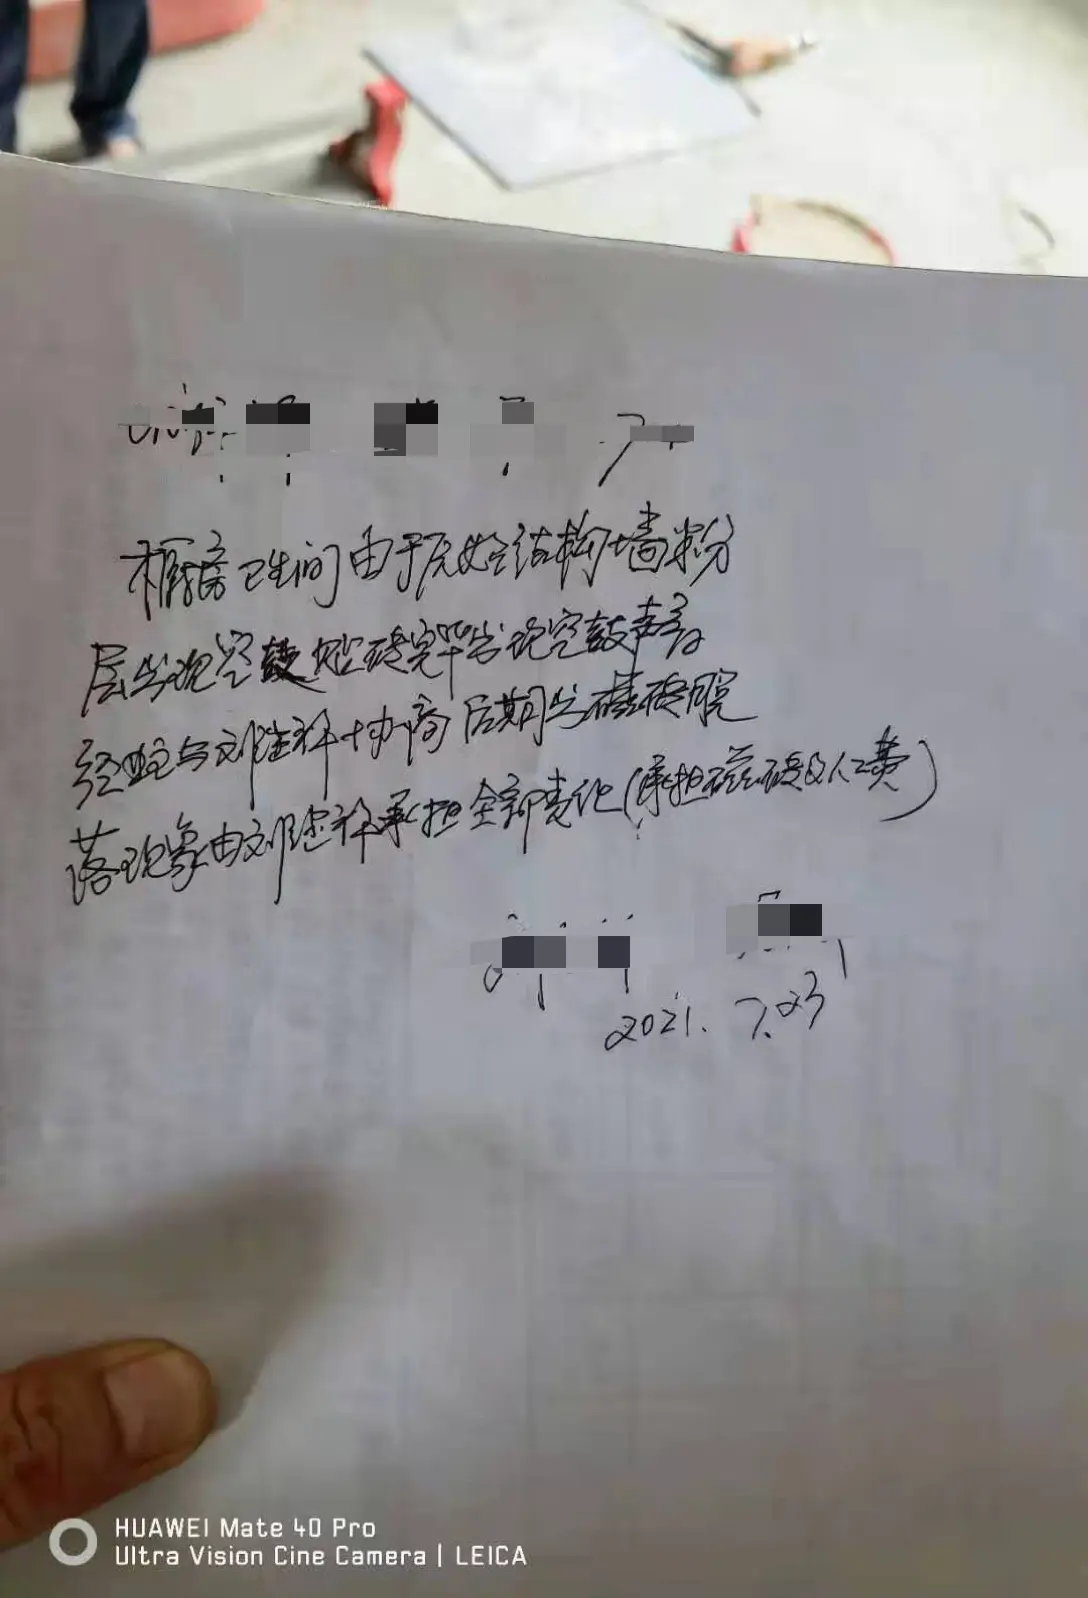 橱房卫生间由于原始结构墙粉
层出现空鼓贴砖完毕出现空鼓声音
经与刘 协商后期出磁砖脱
落现象由刘 承担全部责任(承担磁砖及人工费)
2021. 7.23
HUAWEI Mate 40 Pro
Ultra Vision Cine Camera | LEICA